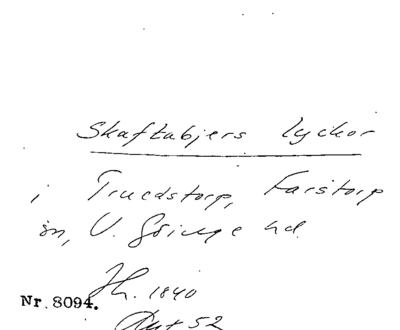 Skaftabjers lyckor
i Truedstorp, Farstorp
sn, V. Göinge hd.
Jh. 1840
Nr. 8094.
52